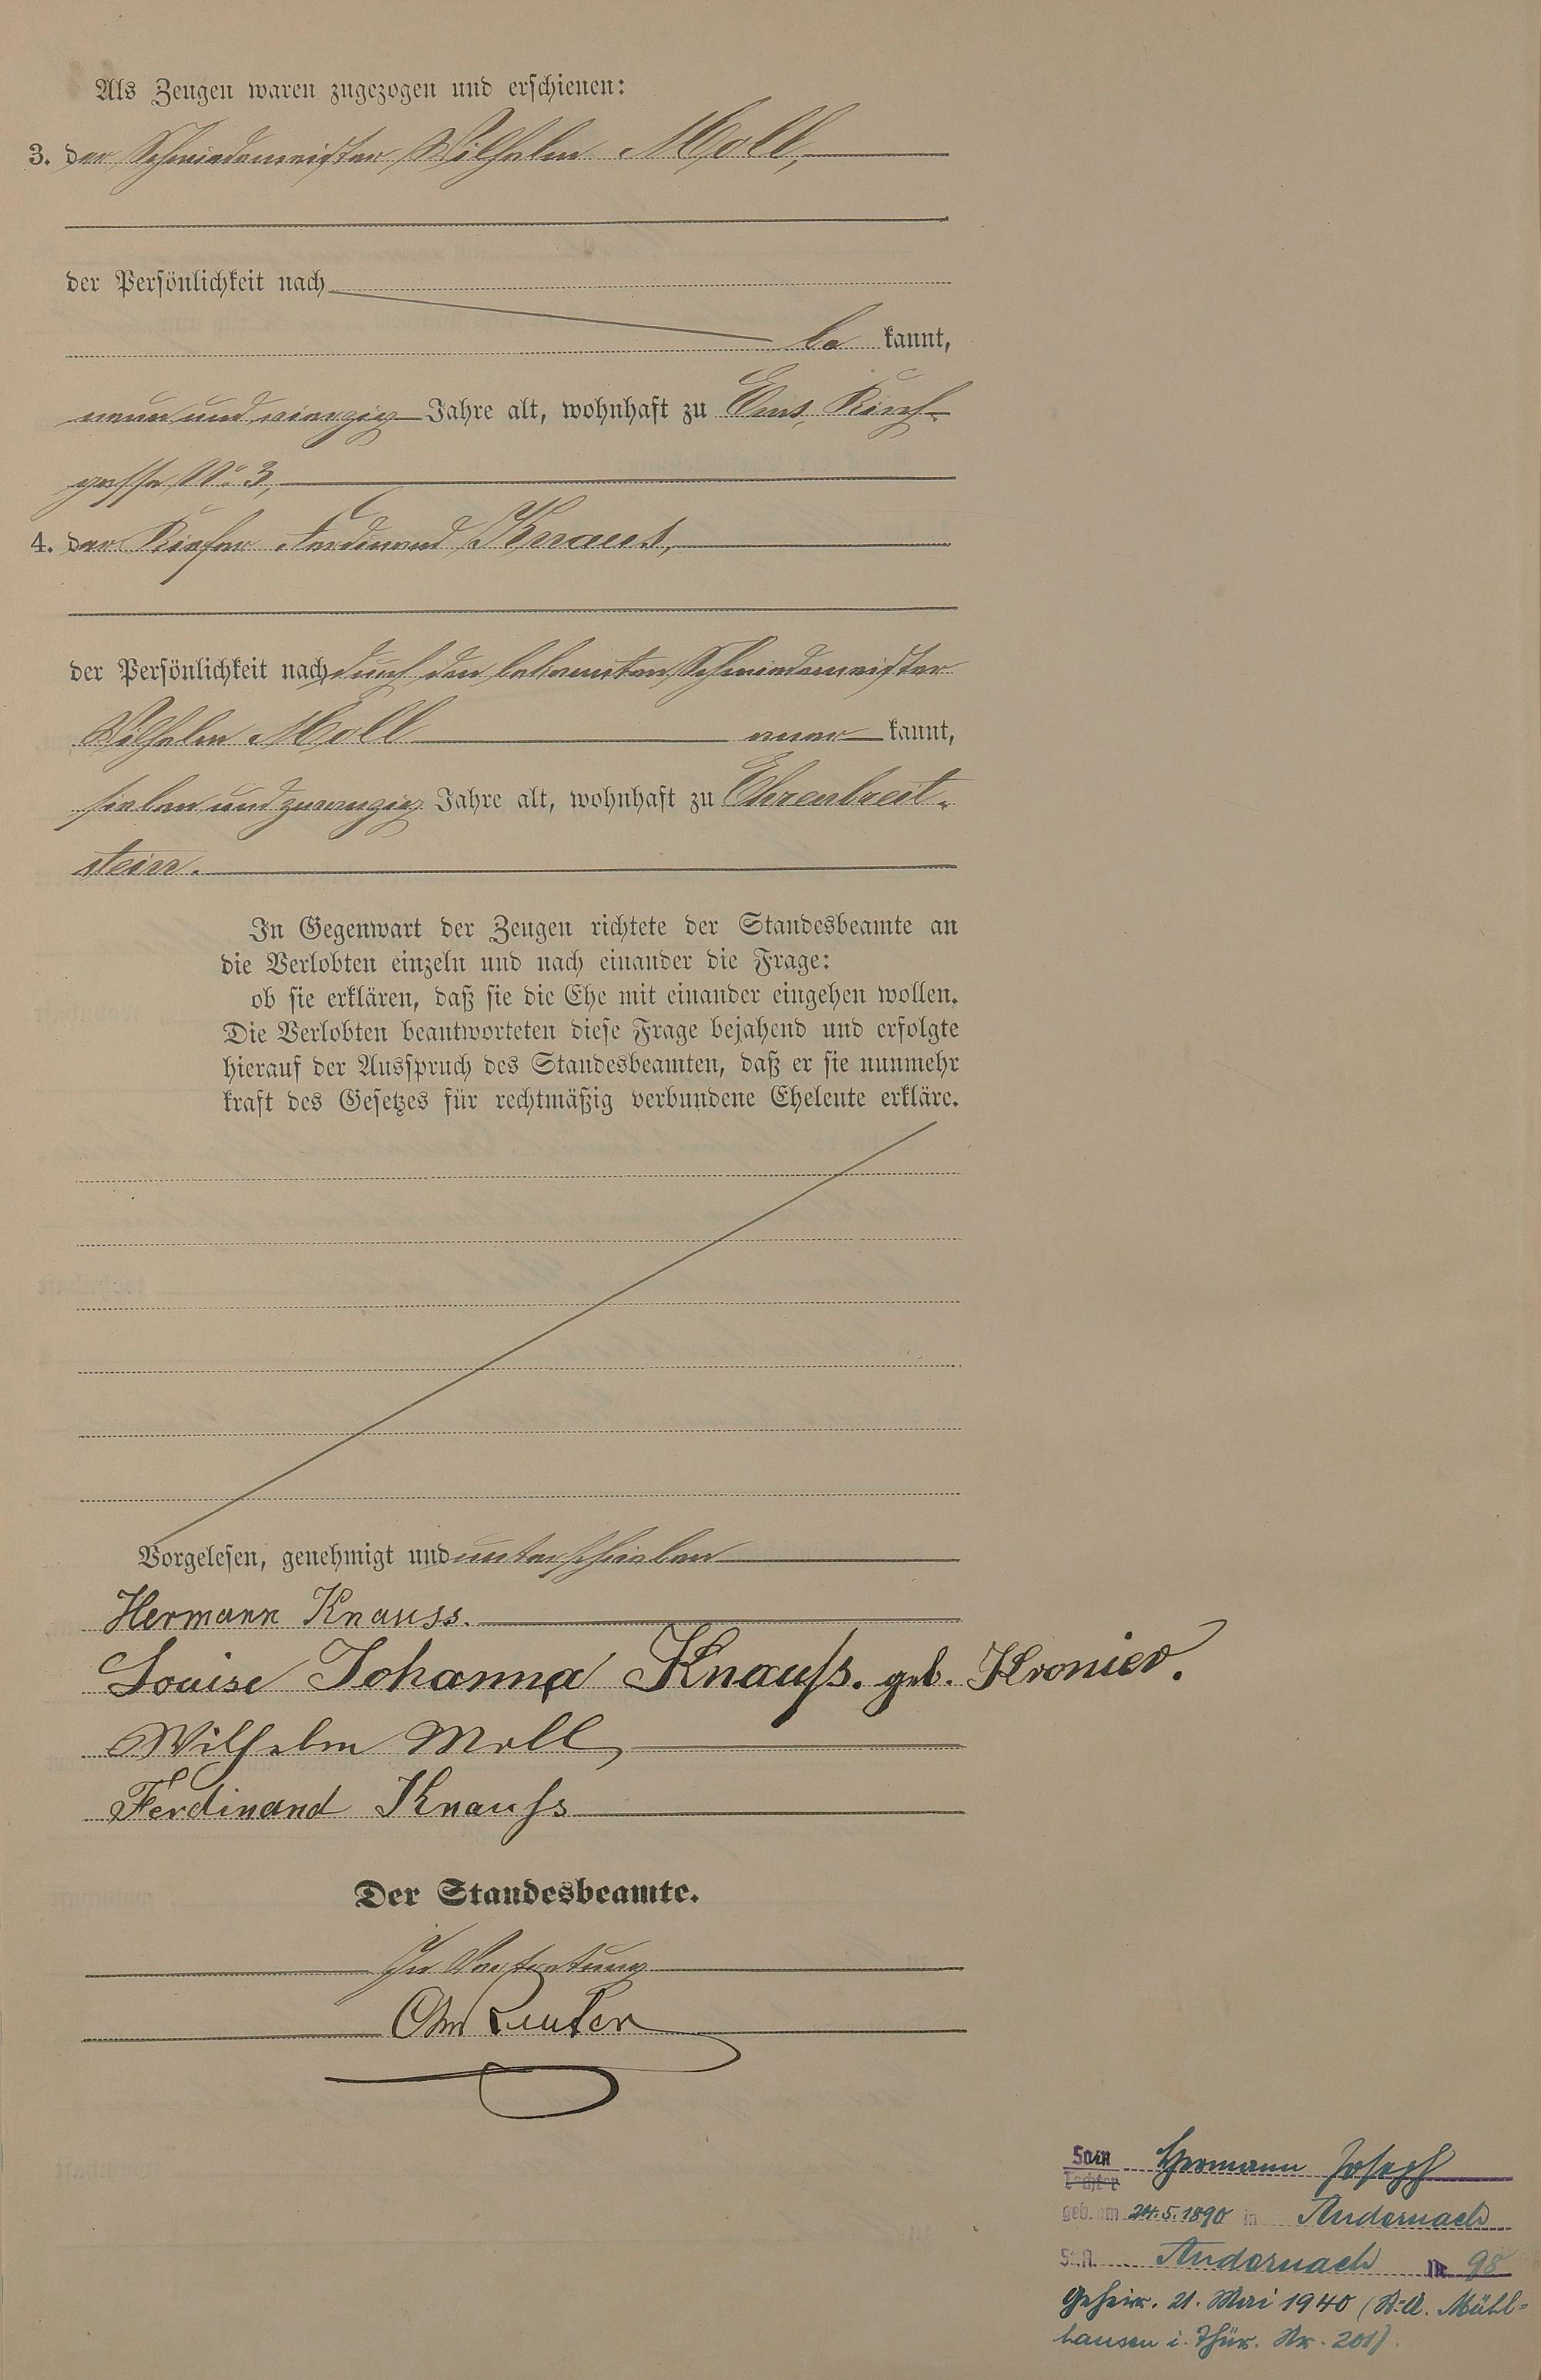 Als Zeugen waren zugezogen und erschienen:
3. der Schmiedemeister Wilhelm Moll,
der Persönlichkeit nach
be kannt,
neun und vierzig Jahre alt, wohnhaft zu Ems, Kirch-
gasse No. 3,
4. der Kiefer Ferdinand Knauss,
der Persönlichkeit nach durch den bekannten Schmiedemeister
Wilhelm Moll aner kannt,
sieben und zwanzig Jahre alt, wohnhaft zu Ehrenbreit-
stein.
In Gegenwart der Zeugen richtete der Standesbeamte an
die Verlobten einzeln und nach einander die Frage:
ob sie erklären, daß sie die Ehe mit einander eingehen wollen.
Die Verlobten beantworteten diese Frage bejahend und erfolgte
hierauf der Ausspruch des Standesbeamten, daß er sie nunmehr
kraft des Gesetzes für rechtmäßig verbundene Eheleute erkläre.
Vorgelesen, genehmigt und unterschrieben
Hermann Knauss.
Louise Johanna Knauß. geb. Kronier.
Wilhelm Moll
Ferdinand Knauss
Der Standesbeamte.
In Vertretung
Reuter
Sohn Hermann Joseph
Tochter
geb. am 24.5.1890 in Andernach
St.A. Andernach Nr. 98
Geheir. 21. Mai 1940 (St.A. Mühl-
hausen i. Thür. Nr. 201).